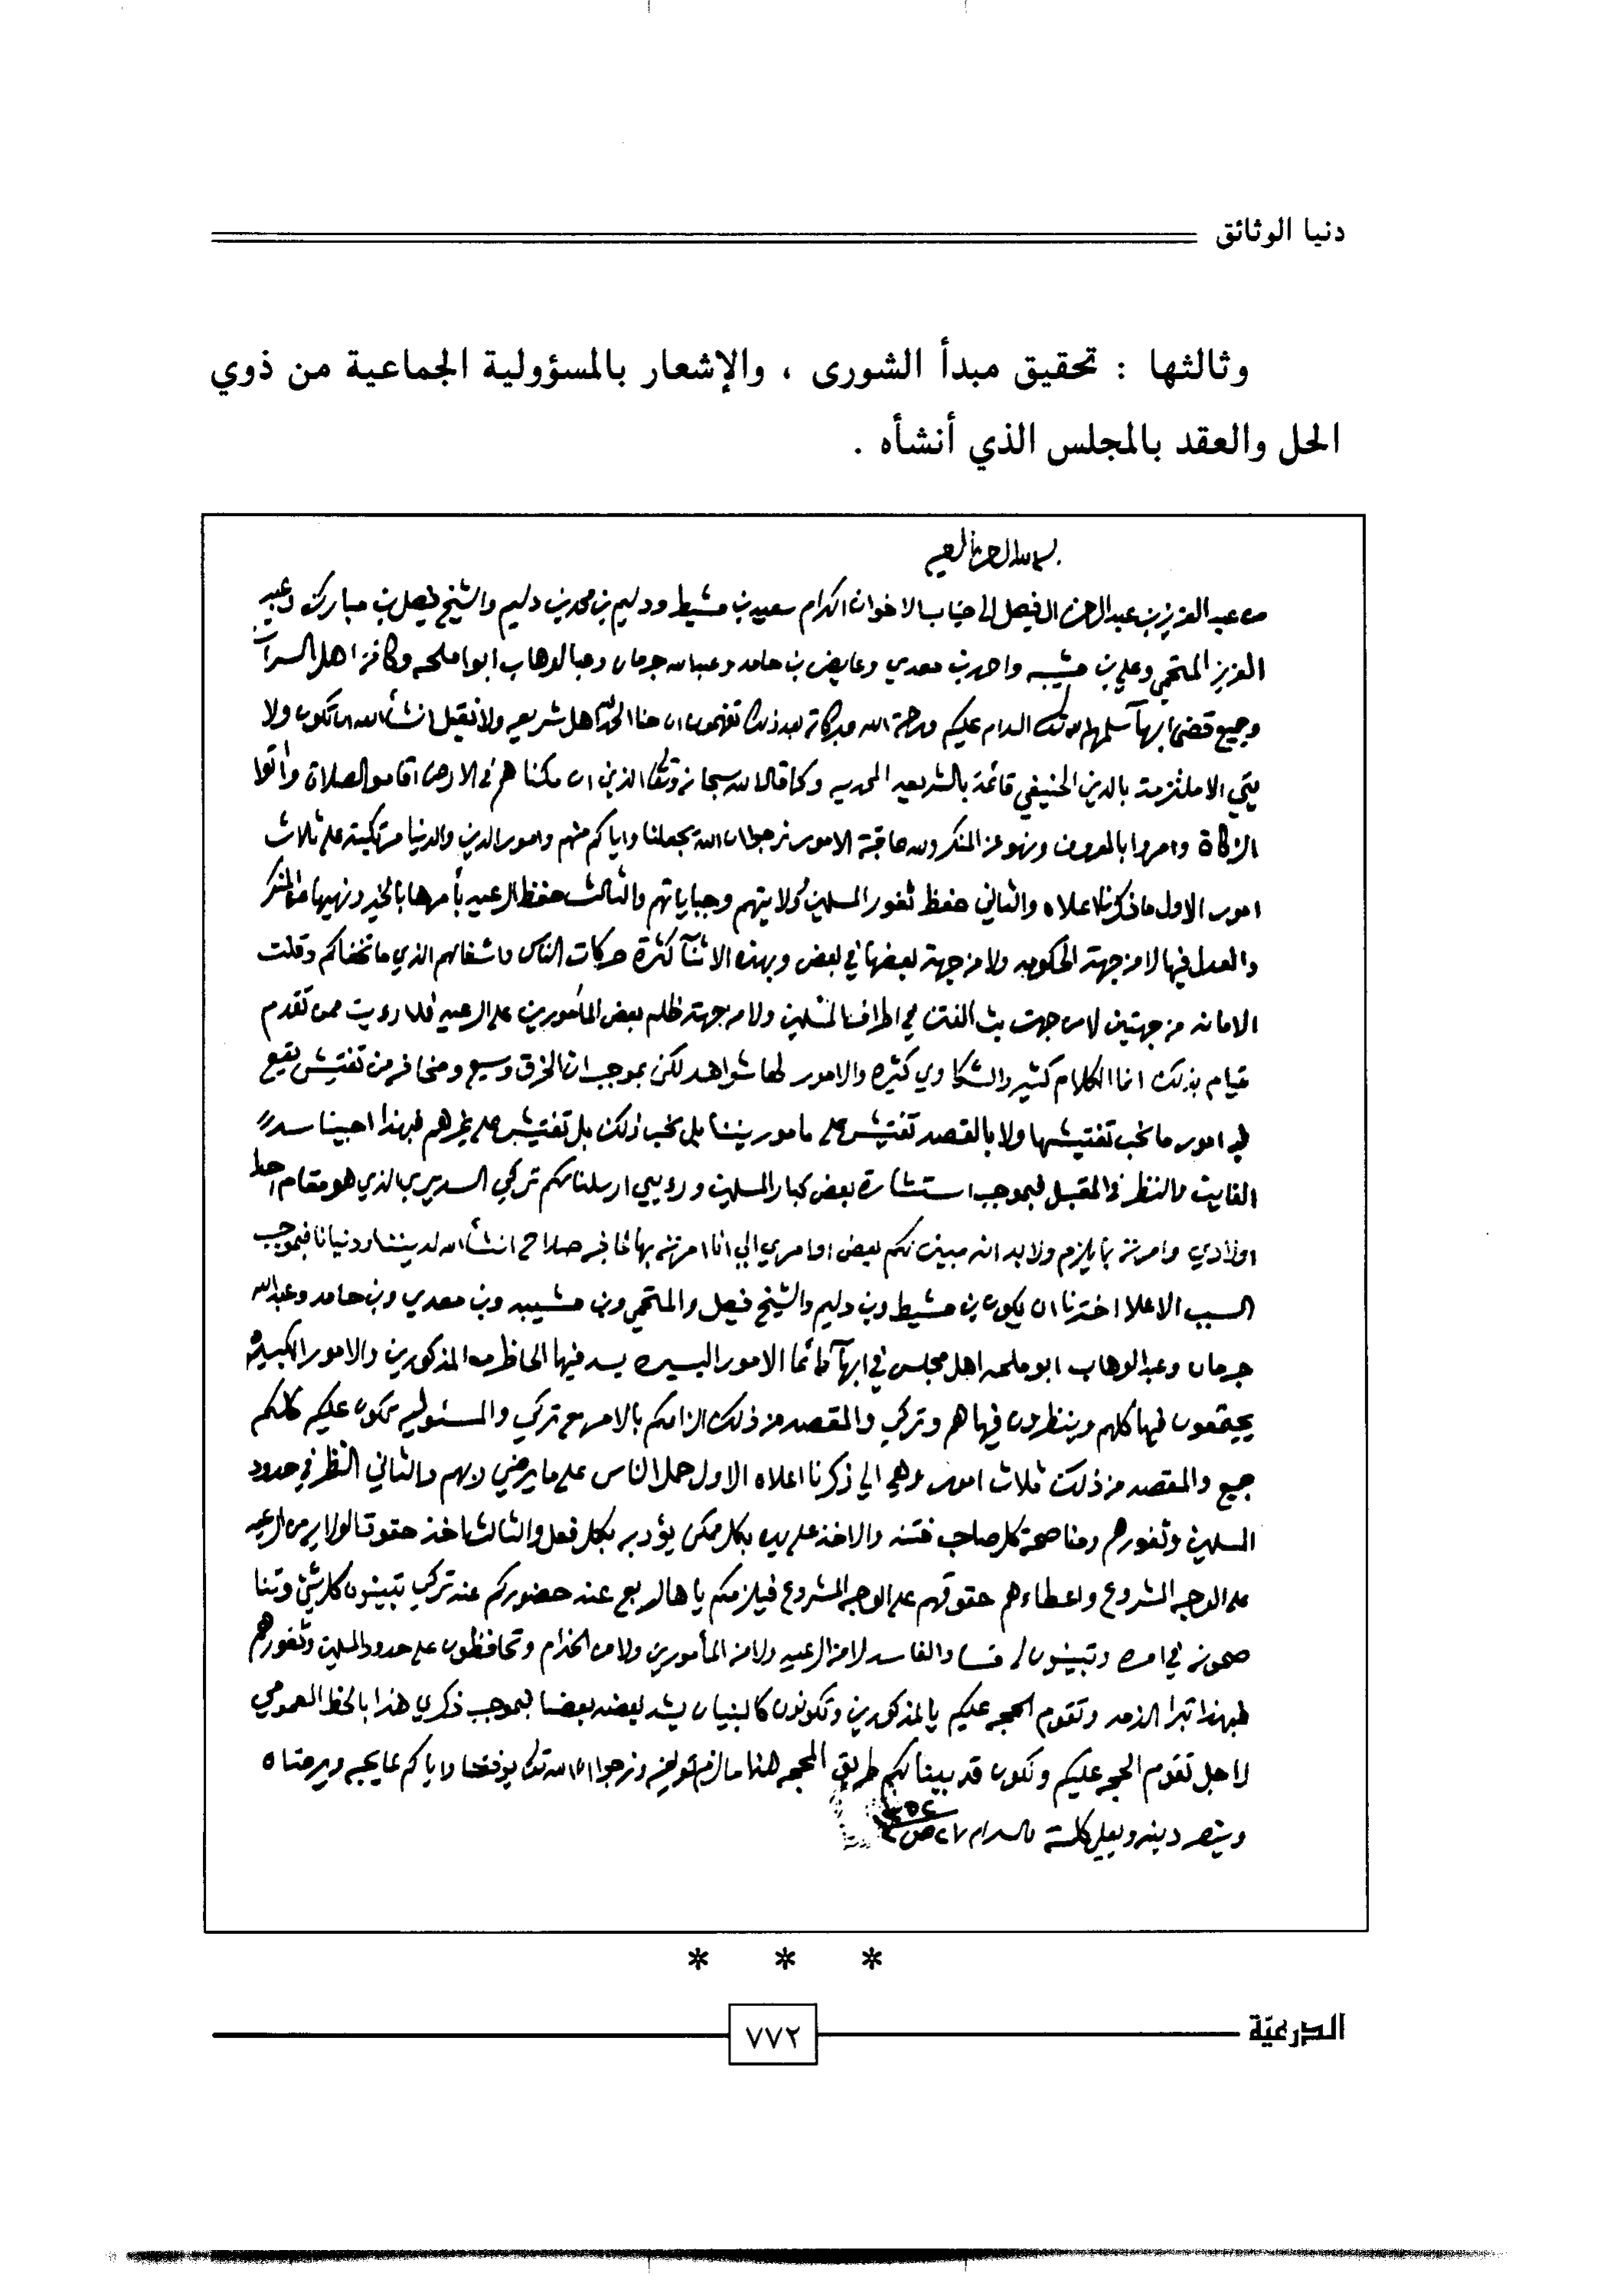 دنيا الوثائق
وثالثها : تحقيق مبدأ الشورى ، والإشعار بالمسؤولية الجماعية من ذوي
الحل والعقد بالمجلس الذي أنشأه .
بسم الله الرحمن الرحيم
من عبد العزيز بن عبد الرحمن الفيصل الى جناب الاخوان الكرام سعيد بن مشيط ودليم بن محمد بن دليم والشيخ فيصل بن مبارك وعبد
العزيز المتحمي وعلي بن مشيبه واحمد بن معدي وعايض بن حامد وعبد الله جرمان وعبد الوهاب ابوا ملحه وكافة اهل السرات
وجميع قضى ابها سلمهم الله تعالى السلام عليكم ورحمة الله وبركاته بعد ذلك تفهمون ان حنا الحمد لله اهل شريعه ولا نقيل انشاء الله ان تكون ولا
الا ملتزمة بالدين الحنيفي قائمة بالشريعه المحمديه وكما قال الله سبحانه وتعالى الذين ان مكناهم في الارض اقاموا الصلاة واتوا
الزكاة وامروا بالمعروف ونهو عن المنكر ولله عاقبة الامور نرجوا ان الله يجعلنا واياكم منهم وامور الدين والدنيا مرتكبة على ثلاث
امور الاول ما ذكرناه اعلاه والثاني حفظ ثغور المسلمين وولايتهم وجباياتهم والثالث حفظ الرعيه بأمرها بالخير ونهيها عن المنكر
والعدل فيها لا من جهة الحكومه ولا من جهة بعضها في بعض وبهذه الاثنآ كثرة حركات الناس واشغالهم الذي ما تخفاكم وقلت
الامانه من جهتين لا من جهت بث الفتن في اطراف المسلمين ولا من جهة ظلم بعض المأمورين على الرعيه فلا رؤيت ممن تقدم
قيام بذلك انما الكلام كثير والشكاوي كثيره والامور لها شواهد لكن بموجب ان الخرق وسيع ومخافة من تفتيش يقع
فيه امور ما نحب تفتيشها ولا بالقصد تفتيش على مامورينا بل نحب ذلك بل تفتيش على غيرهم فبهذا احبينا سد
الفايت والنظر في المقبل فبموجب استشارة بعض كبار المسلمين ورؤيي ارسلنا لكم تركي السديري الذي هو مقام احد
اولادي وامرته بما يلزم ولا بد انه مبين لكم بعض اوامري الي انا امرته بها لما فيه صلاح انشاء الله لديننا ودنيانا فبموجب
السبب الاعلا اخترنا ان يكون بن مشيط وبن دليم والشيخ فيصل والمتحمي وبن مشيبه وبن معدي وبن حامد وعبد الله
جرمان وعبد الوهاب ابو ملحه اهل مجلس في ابها الامور اليسيره يسد فيها الحاظر من المذكورين والامور الكبيره
يجتمعون فيها كلهم وينظرون فيها هم وتركي والمقصد من ذلك الزامكم بالامر مع تركي والمسئوليه تكون عليكم كلكم
جميع والمقصد من ذلك ثلاث امور وهي الي ذكرنا اعلاه الاول حمل الناس على ما يرضي ربهم والثاني النظر في حدود
المسلمين وثغورهم ومناصحة كل صاحب فتنه والاخذ على يده بكل ممكن يؤدبه بكل فعل والثالث اخذ حقوق الولايه من الرعيه
على الوجه المشروع واعطاءهم حقوقهم على الوجه المشروع فيلزمكم يا هالربع عند حضوركم عند تركي تبينون له كل شي وتنا
صحونه في امره وتبينون له فساد الفاسد لا من الرعيه ولا من المأمورين ولا من الخدام وتحافظون على حدود المسلمين وثغورهم
فبهذا تبرا الذمه وتقوم الحجه عليكم يالمذكورين وتكونون كالبنيان يشد بعضه بعضا فبموجب ذكري هذا بالخط العمومي
لاجل تقوم الحجه عليكم ونكون قد بينا لكم طريق المحجه هذا ما لزم تعريفه ونرجوا ان الله تعالى يوفقنا واياكم لما يحبه ويرضاه
وينصر دينه ويعلي كلمته والسلام ٢٧ ص ١٣٥٢
* * *
الدرعيّة
٧٧٢